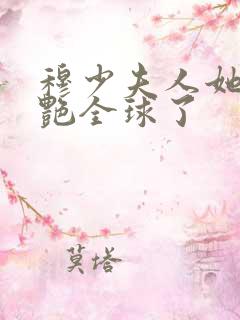 穆少夫人她
艳全球了
莫塔